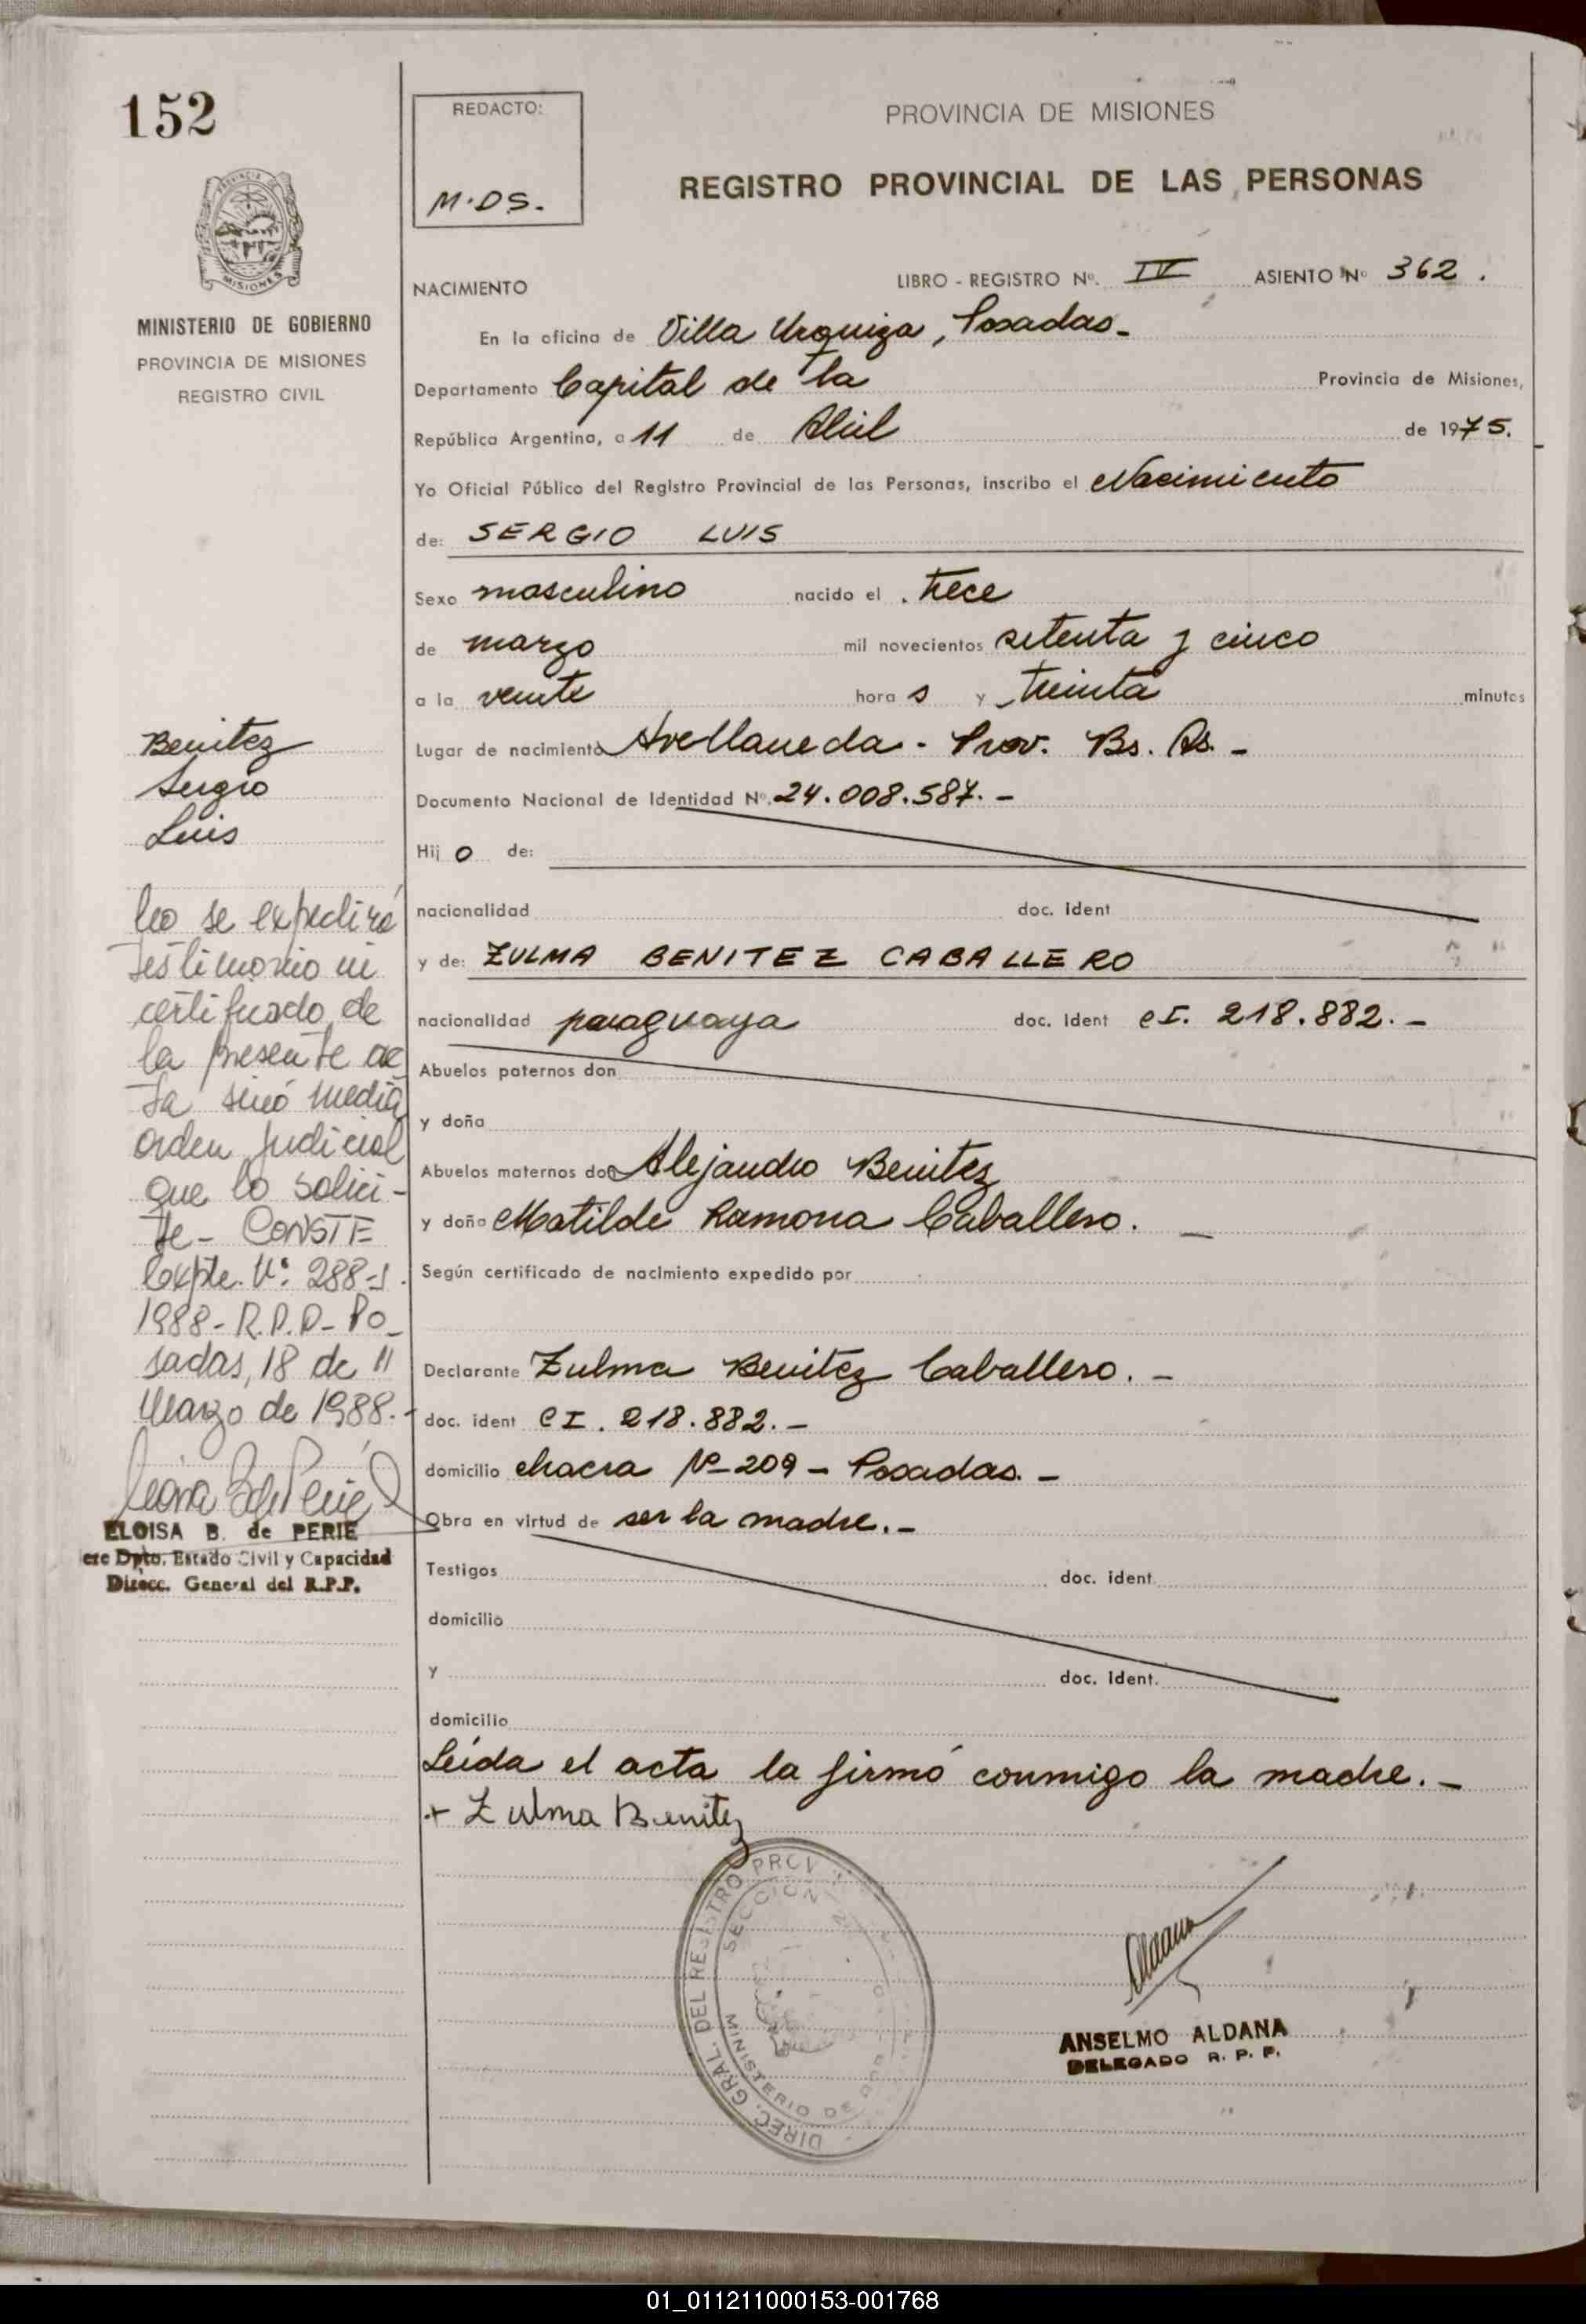 152
REDACTO:
M.DS.
PROVINCIA DE MISIONES
REGISTRO PROVINCIAL DE LAS PERSONAS
MISIONES
MINISTERIO DE GOBIERNO
PROVINCIA DE MISIONES
REGISTRO CIVIL
NACIMIENTO LIBRO - REGISTRO Nº. IV ASIENTO Nº 362.
En la oficina de Villa Urquiza, Posadas-
Departamento Capital de la Provincia de Misiones,
República Argentina, a 11 de Abril de 1975.
Yo Oficial Público del Registro Provincial de las Personas, inscribo el Nacimiento
de: SERGIO LUIS
Sexo masculino nacido el trece
de marzo mil novecientos setenta y cinco
a la veinte hora s y treinta minutos
Lugar de nacimiento Avellaneda - Prov. Bs. As. -
Documento Nacional de Identidad Nº. 24.008.587. -
Hij o de:
nacionalidad doc. ident
y de: ZULMA BENITEZ CABALLERO
nacionalidad paraguaya doc. ident CI. 218.882. -
Abuelos paternos don
y doña
Abuelos maternos don Alejandro Benitez
y doña Matilde Ramona Caballero. -
Según certificado de nacimiento expedido por
Declarante Zulma Benitez Caballero. -
doc. ident CI. 218.882. -
domicilio chacra Nº 209 - Posadas. -
Obra en virtud de ser la madre. -
Testigos doc. ident.
domicilio
y doc. ident.
domicilio
Leída el acta la firmó conmigo la madre. -
+ Zulma Benitez
Benitez
Sergio
Luis
No se expedirá
testimonio ni
certificado de
la presente ac
ta sinó media
orden judicial
que lo solici-
te- CONSTE
Expte. Nº: 288-
1988- R.P.P- Po_
sadas, 18 de
Marzo de 1988.-
ELOISA B. de PERIE
Dpto. Estado Civil y Capacidad
Direcc. General del R.P.P.
DIREC. GRAL. DEL REGISTRO PROV
SECCION
MINISTERIO DE
Aldana
ANSELMO ALDANA
DELEGADO R. P. P.
01_011211000153-001768